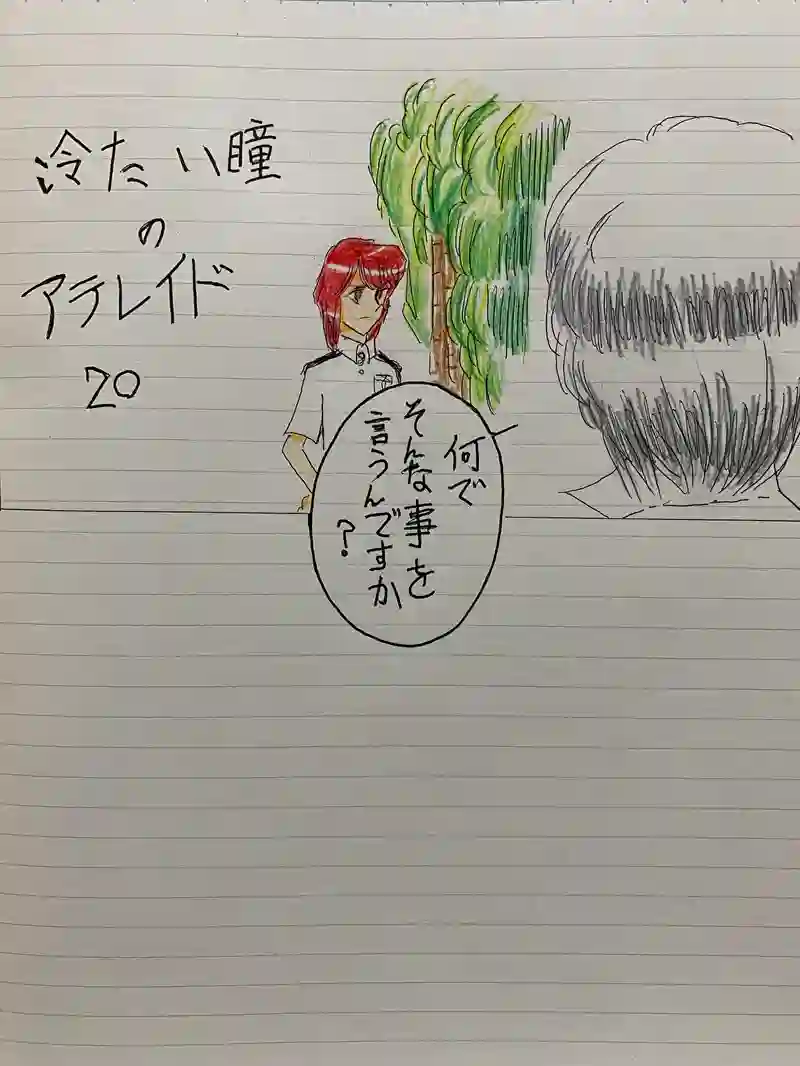 冷たい瞳
の
アテレイド
20
何で
そんな事を
言うんですか
?